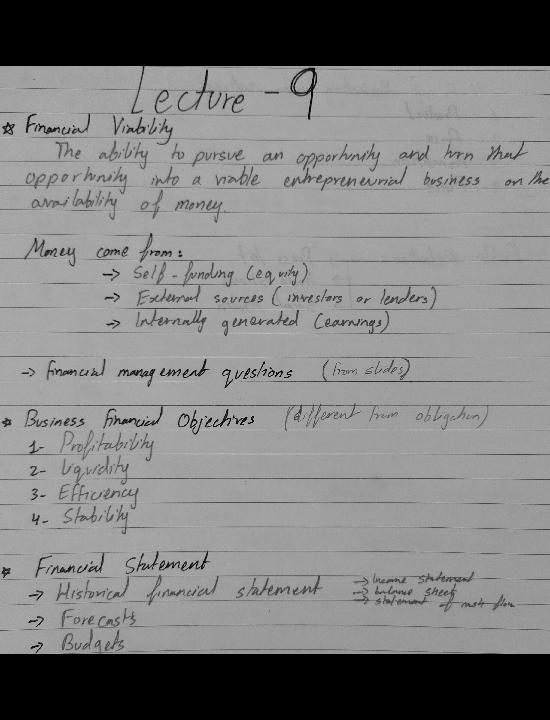 Lecture - 9
Financial Viability
The ability to pursue an opportunity and turn that
opportunity into a viable entrepreneurial business on the
availability of money.
Money come from:
→ Self-funding (equity)
→ External sources (investors or lenders)
→ Internally generated (earnings)
→ Financial management questions (from slides)
Business Financial Objectives (different from obligation)
1- Profitability
2- Liquidity
3- Efficiency
4- Stability
Financial Statement
→ Historical financial statement
→ income statement
→ balance sheet
→ statement of cash flow
→ Forecasts
→ Budgets